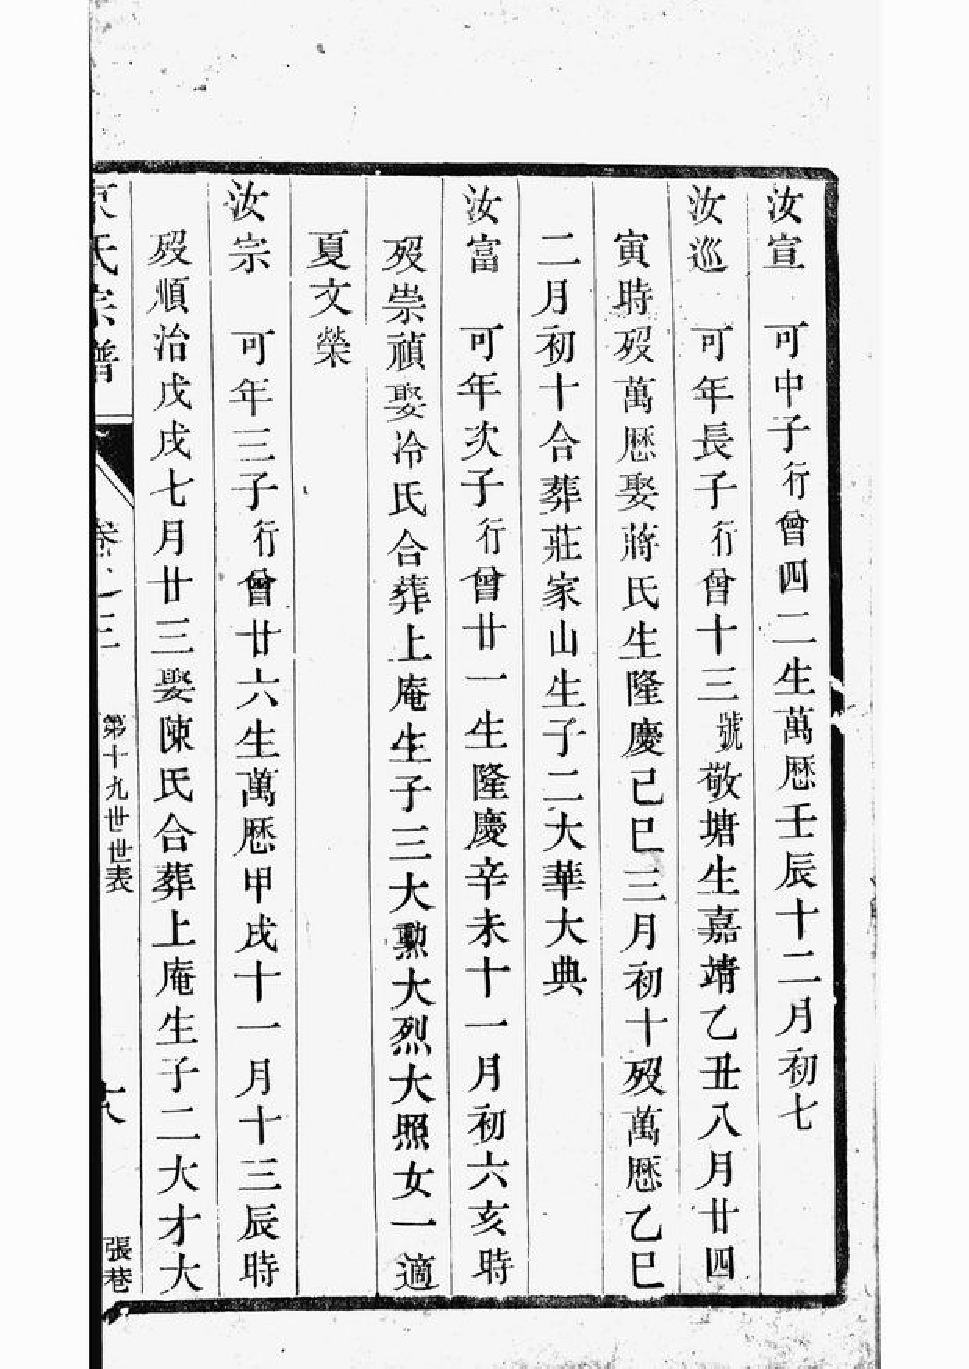 汝宣　可中子行曾四二生萬厯壬辰十二月初七
汝巡　可年長子行曾十三號敬塘生嘉靖乙丑八月廿四
寅時歿萬厯娶蔣氏生隆慶己巳三月初十歿萬厯乙巳
二月初十合葬莊家山生子二大華大典
汝富　可年次子行曾廿一生隆慶辛未十一月初六亥時
歿崇禎娶冷氏合葬上庵生子三大勲大烈大照女一適
夏文榮
汝宗　可年三子行曾廿六生萬厯甲戌十一月十三辰時
歿順治戊戌七月廿三娶陳氏合葬上庵生子二大才大
氏宗譜　卷之三　第十九世世表　張巷